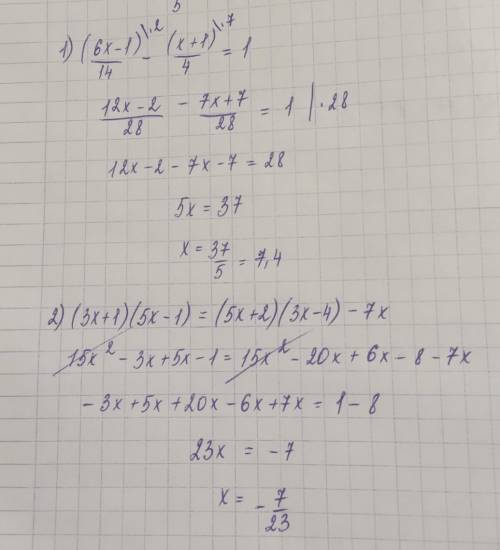 5
1) (6x-1)\·2/14 - (x+1)\·7/4 = 1
12x-2/28 - 7x+7/28 = 1 |·28
12x-2-7x-7=28
5x=37
x=37/5=7,4
2) (3x+1)(5x-1)=(5x+2)(3x-4)-7x
15x²-3x+5x-1=15x²-20x+6x-8-7x
-3x+5x+20x-6x+7x=1-8
23x=-7
x=-7/23